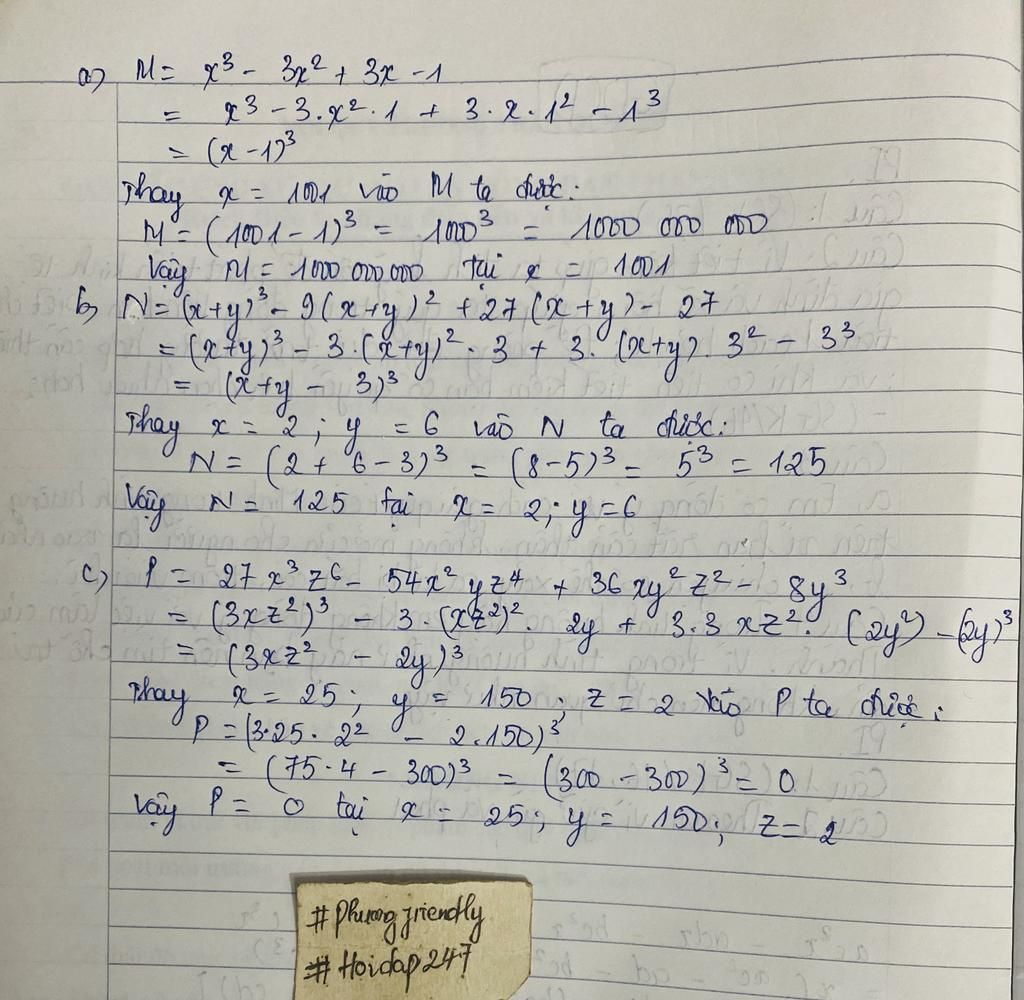 a) M = x³ - 3x² + 3x - 1
= x³ - 3.x².1 + 3.x.1² - 1³
= (x - 1)³
Thay x = 1001 vào M ta được:
M = (1001 - 1)³ = 1000³ = 1000 000 000
Vậy M = 1000 000 000 tại x = 1001
b) N = (x+y)³ - 9(x+y)² + 27(x+y) - 27
= (x+y)³ - 3.(x+y)².3 + 3.(x+y).3² - 3³
= (x+y - 3)³
Thay x = 2; y = 6 vào N ta được:
N = (2 + 6 - 3)³ = (8 - 5)³ = 5³ = 125
Vậy N = 125 tại x = 2; y = 6
c) P = 27x³z⁶ - 54x²yz⁴ + 36xy²z² - 8y³
= (3xz²)³ - 3.(xz²)².2y + 3.3xz².(2y²) - (2y)³
= (3xz² - 2y)³
Thay x = 25; y = 150; z = 2 vào P ta được:
P = (3.25.2² - 2.150)³
= (75.4 - 300)³ = (300 - 300)³ = 0
Vậy P = 0 tại x = 25; y = 150; z = 2
#Phuongfriendly
#Hoidap247